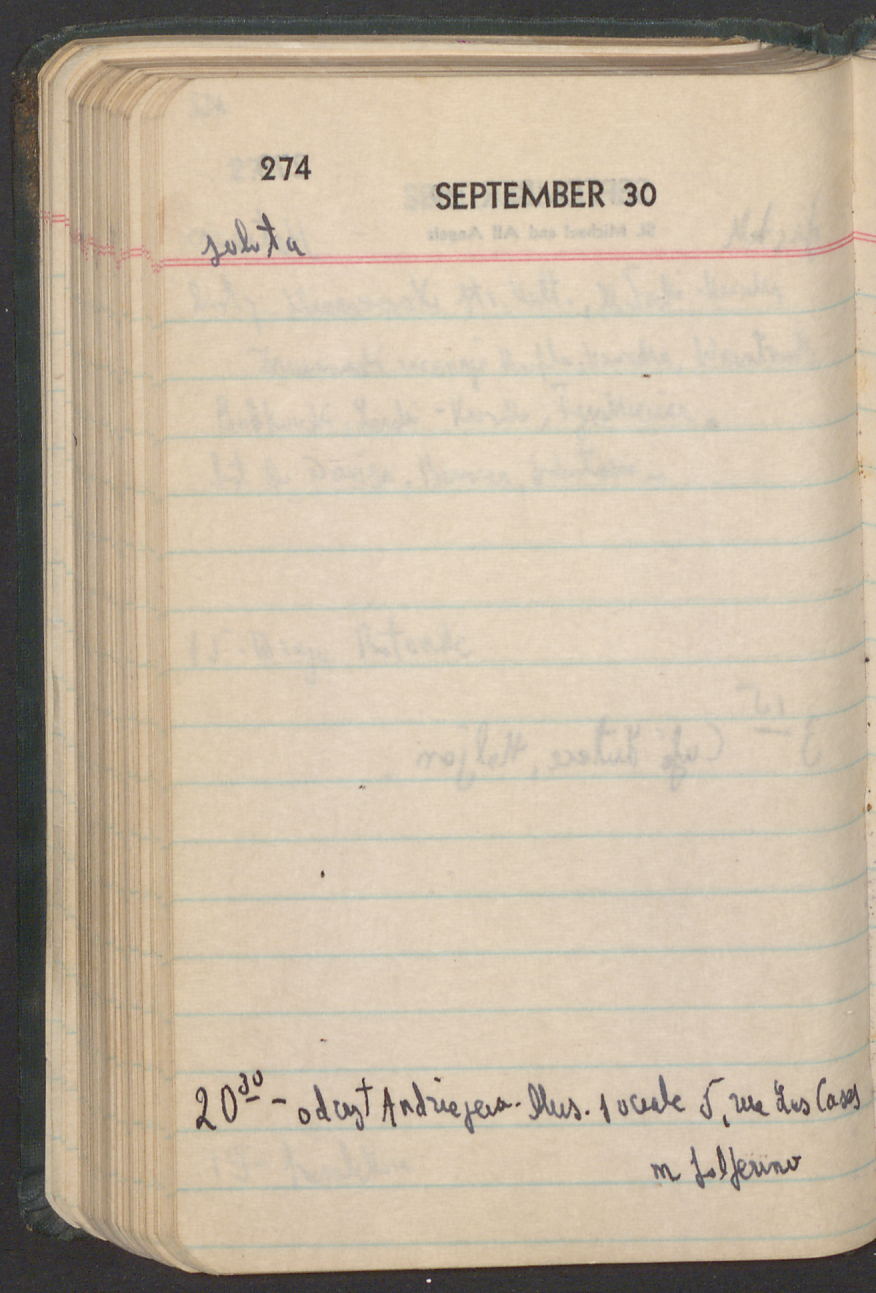 274
SEPTEMBER 30
sobota
20³⁰ - odczyt Andrzeja - Mus. Sociale 5, rue Las Cases
m Solferino